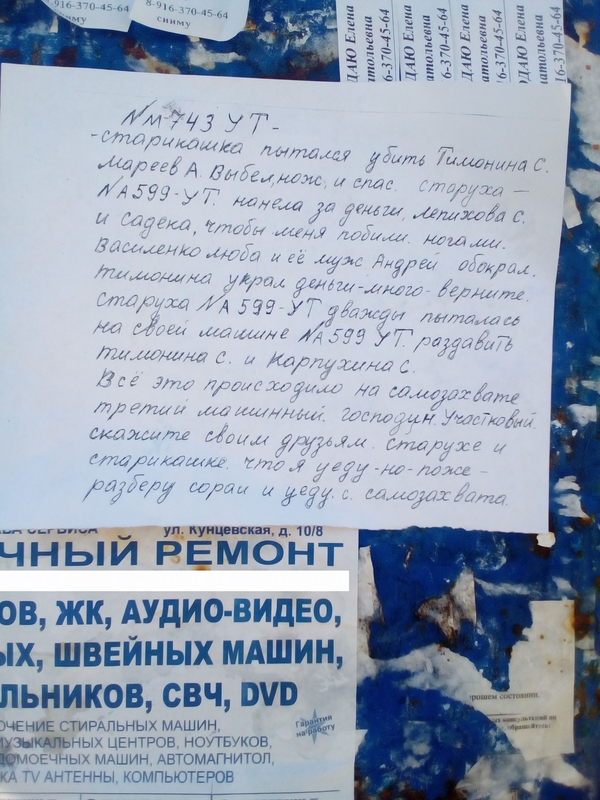 8-916-370-45-64
сниму
8-916-370-45-64
сниму
ДАЮ Елена
атольевна
6-370-45-64
ДАЮ Елена
Анатольевна
6-370-45-64
ДАЮ Елена
Анатольевна
6-370-45-64
ОДАЮ Елена
Анатольевна
16-370-45-64
NМ743УТ-
-старикашка пытался убить Тимонина С.
Мареев А. Выбел, нож, и спас. старуха-
NА599-УТ. нанела за деньги, Лепихова С.
и Садека, чтобы меня побили. ногами.
Василенко люба и её муж Андрей обокрал.
Тимонина украл деньги-много-верните.
старуха NА599-УТ дважды пыталась
на своей машине NА599 УТ. раздавить
Тимонина С. и Карпухина С.
Всё это происходило на самозахвате
третий машинный. господин. Участковый.
скажите своим друзьям. старухе и
старикашке. что я уеду-но-поже-
разберу сораи и уеду. с. самозахвата.
СЕРВИСА ул. Кунцевская, д. 10/8
ЧНЫЙ РЕМОНТ
ОВ, ЖК, АУДИО-ВИДЕО,
ЫХ, ШВЕЙНЫХ МАШИН,
ЛЬНИКОВ, СВЧ, DVD
ЮЧЕНИЕ СТИРАЛЬНЫХ МАШИН,
МУЗЫКАЛЬНЫХ ЦЕНТРОВ, НОУТБУКОВ,
ДОМОЕЧНЫХ МАШИН, АВТОМАГНИТОЛ,
КА TV АНТЕННЫ, КОМПЬЮТЕРОВ
Гарантия
на работу
хорошем состоянии.